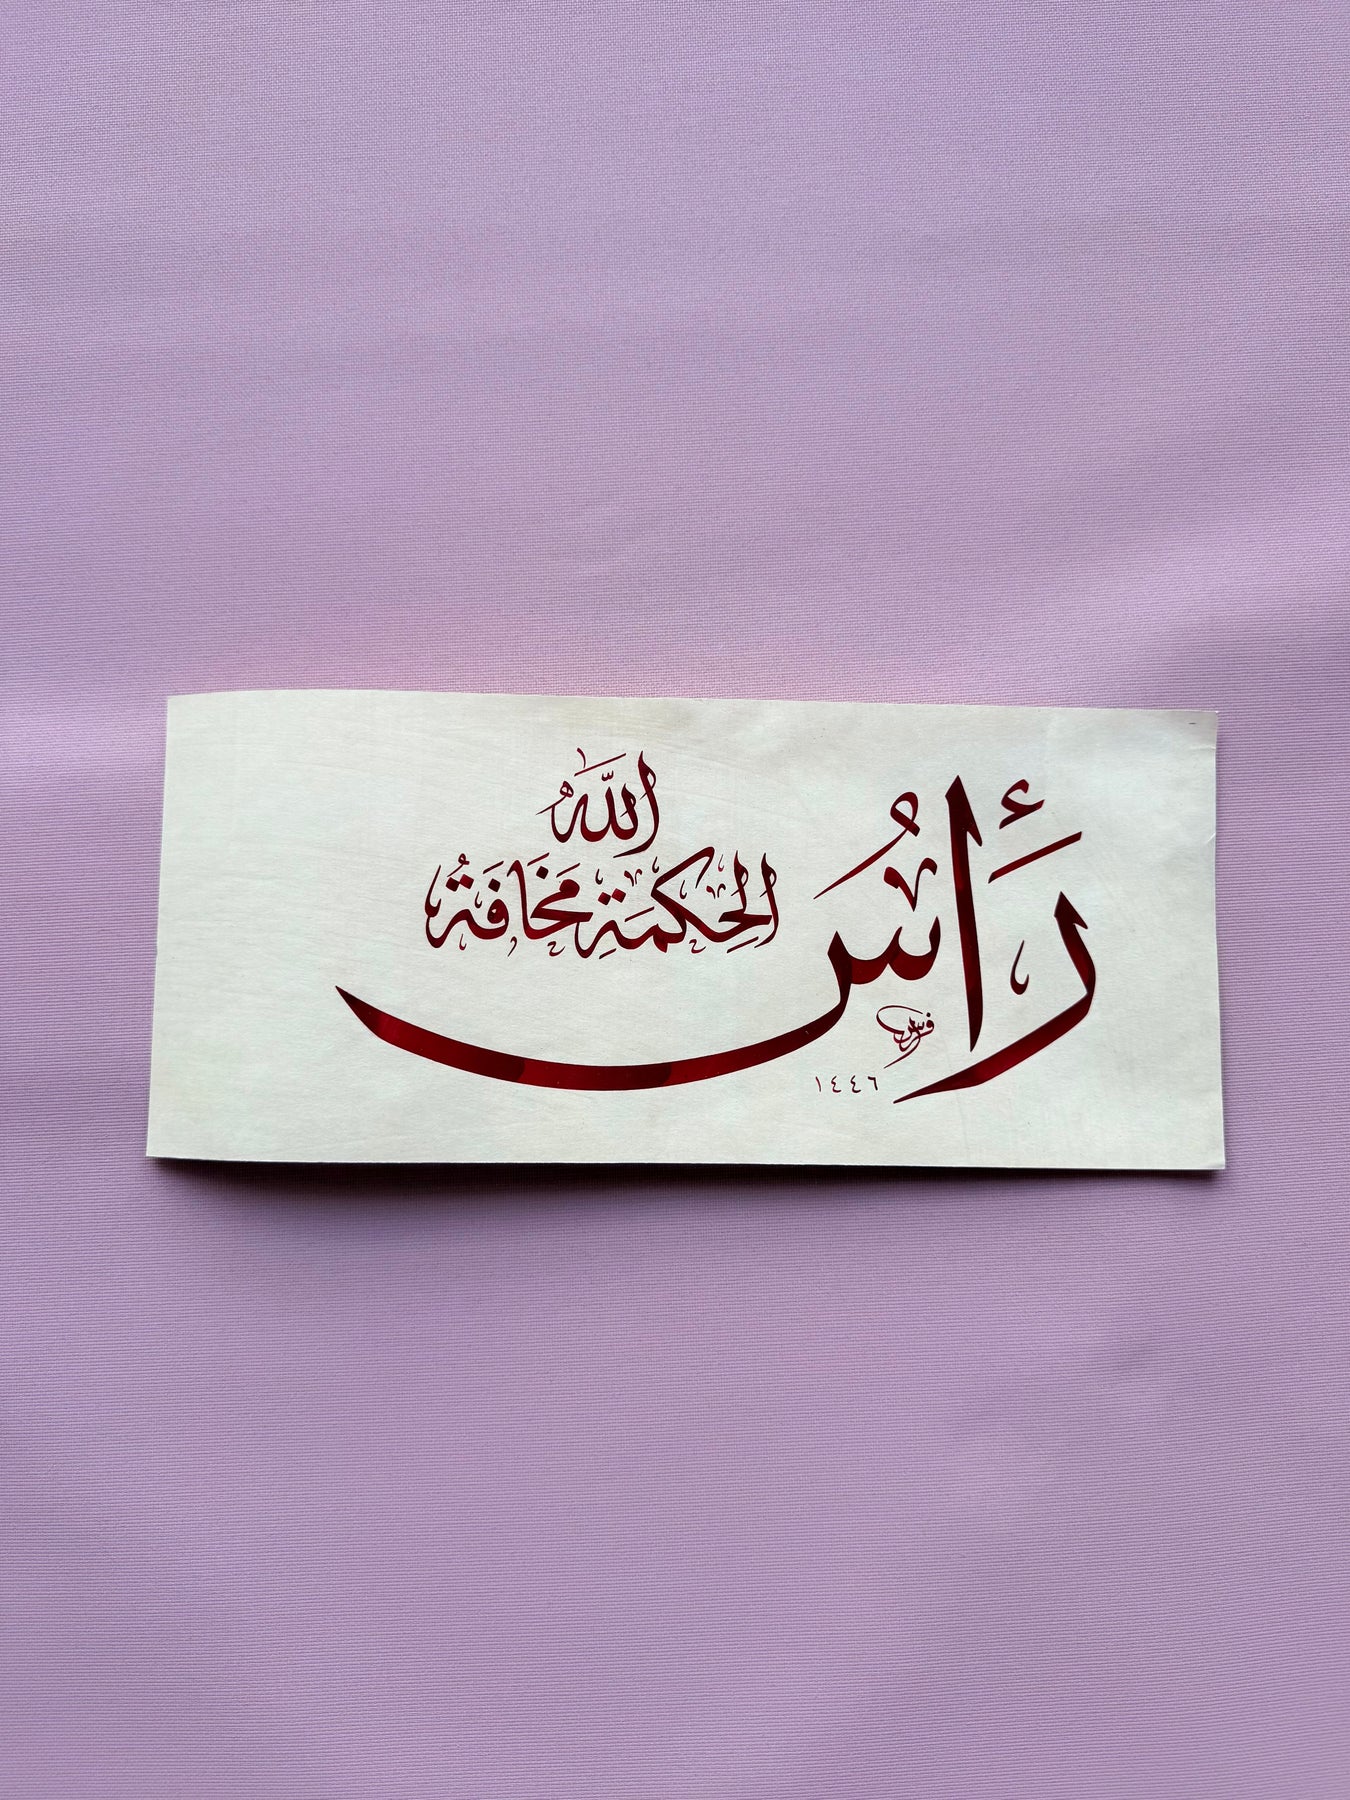 رَأْسُ الْحِكْمَةِ مَخَافَةُ اللَّهِ
١٤٤٦